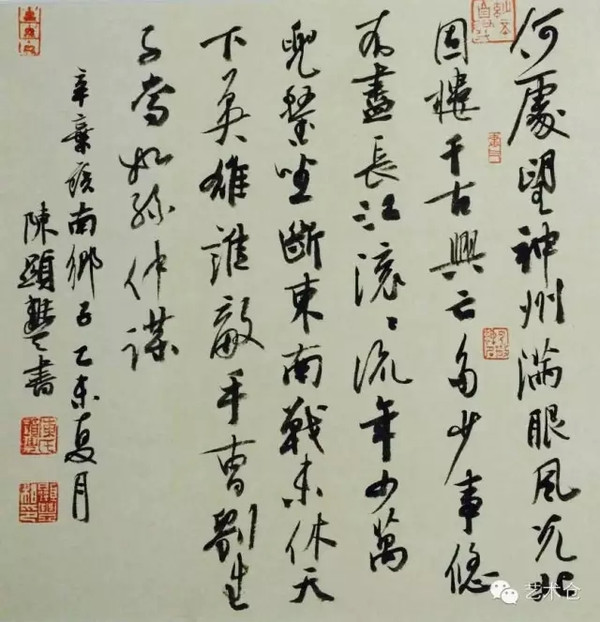 何處望神州滿眼風光北
固樓千古興亡多少事悠
不盡長江滾〻流年少萬
兜鍪坐斷東南戰未休天
下英雄誰敵手曹劉生
子當如孫仲謀
辛棄疾南鄉子乙未夏月
陳顯書
艺术仓